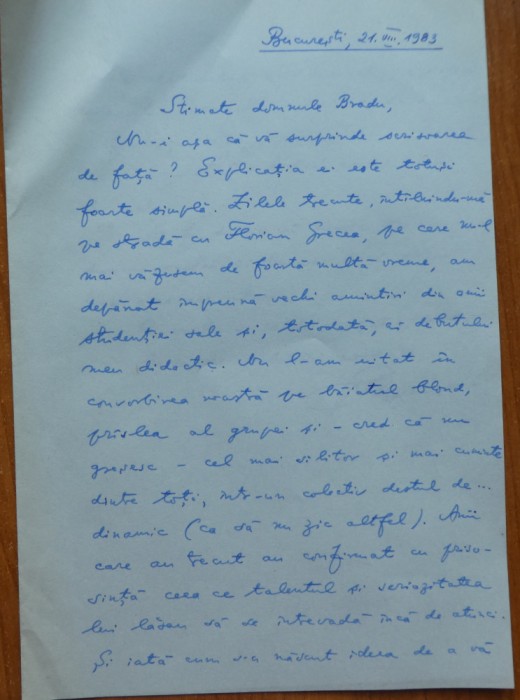 București, 21.VIII.1983
Stimate domnule Bradu,
Nu-i așa că vă surprinde scrisoarea
de față? Explicația ei este totuși
foarte simplă. Zilele trecute, întîlnindu-mă
pe stradă cu Florian Grecea, pe care nu-l
mai văzusem de foarte multă vreme, am
depănat împreună vechi amintiri din anii
studenției sale și, totodată, ai debutului
meu didactic. Nu l-am uitat în
convorbirea noastră pe băiatul blond,
prîslea al grupei și - cred că nu
greșesc - cel mai silitor și mai cuminte
dintre toți, într-un colectiv destul de...
dinamic (ca să nu zic altfel). Anii
care au trecut au confirmat cu priso-
sință ceea ce talentul și seriozitatea
lui lăsau să se întrevadă încă de atunci.
Și iată cum s-a născut ideea de a vă